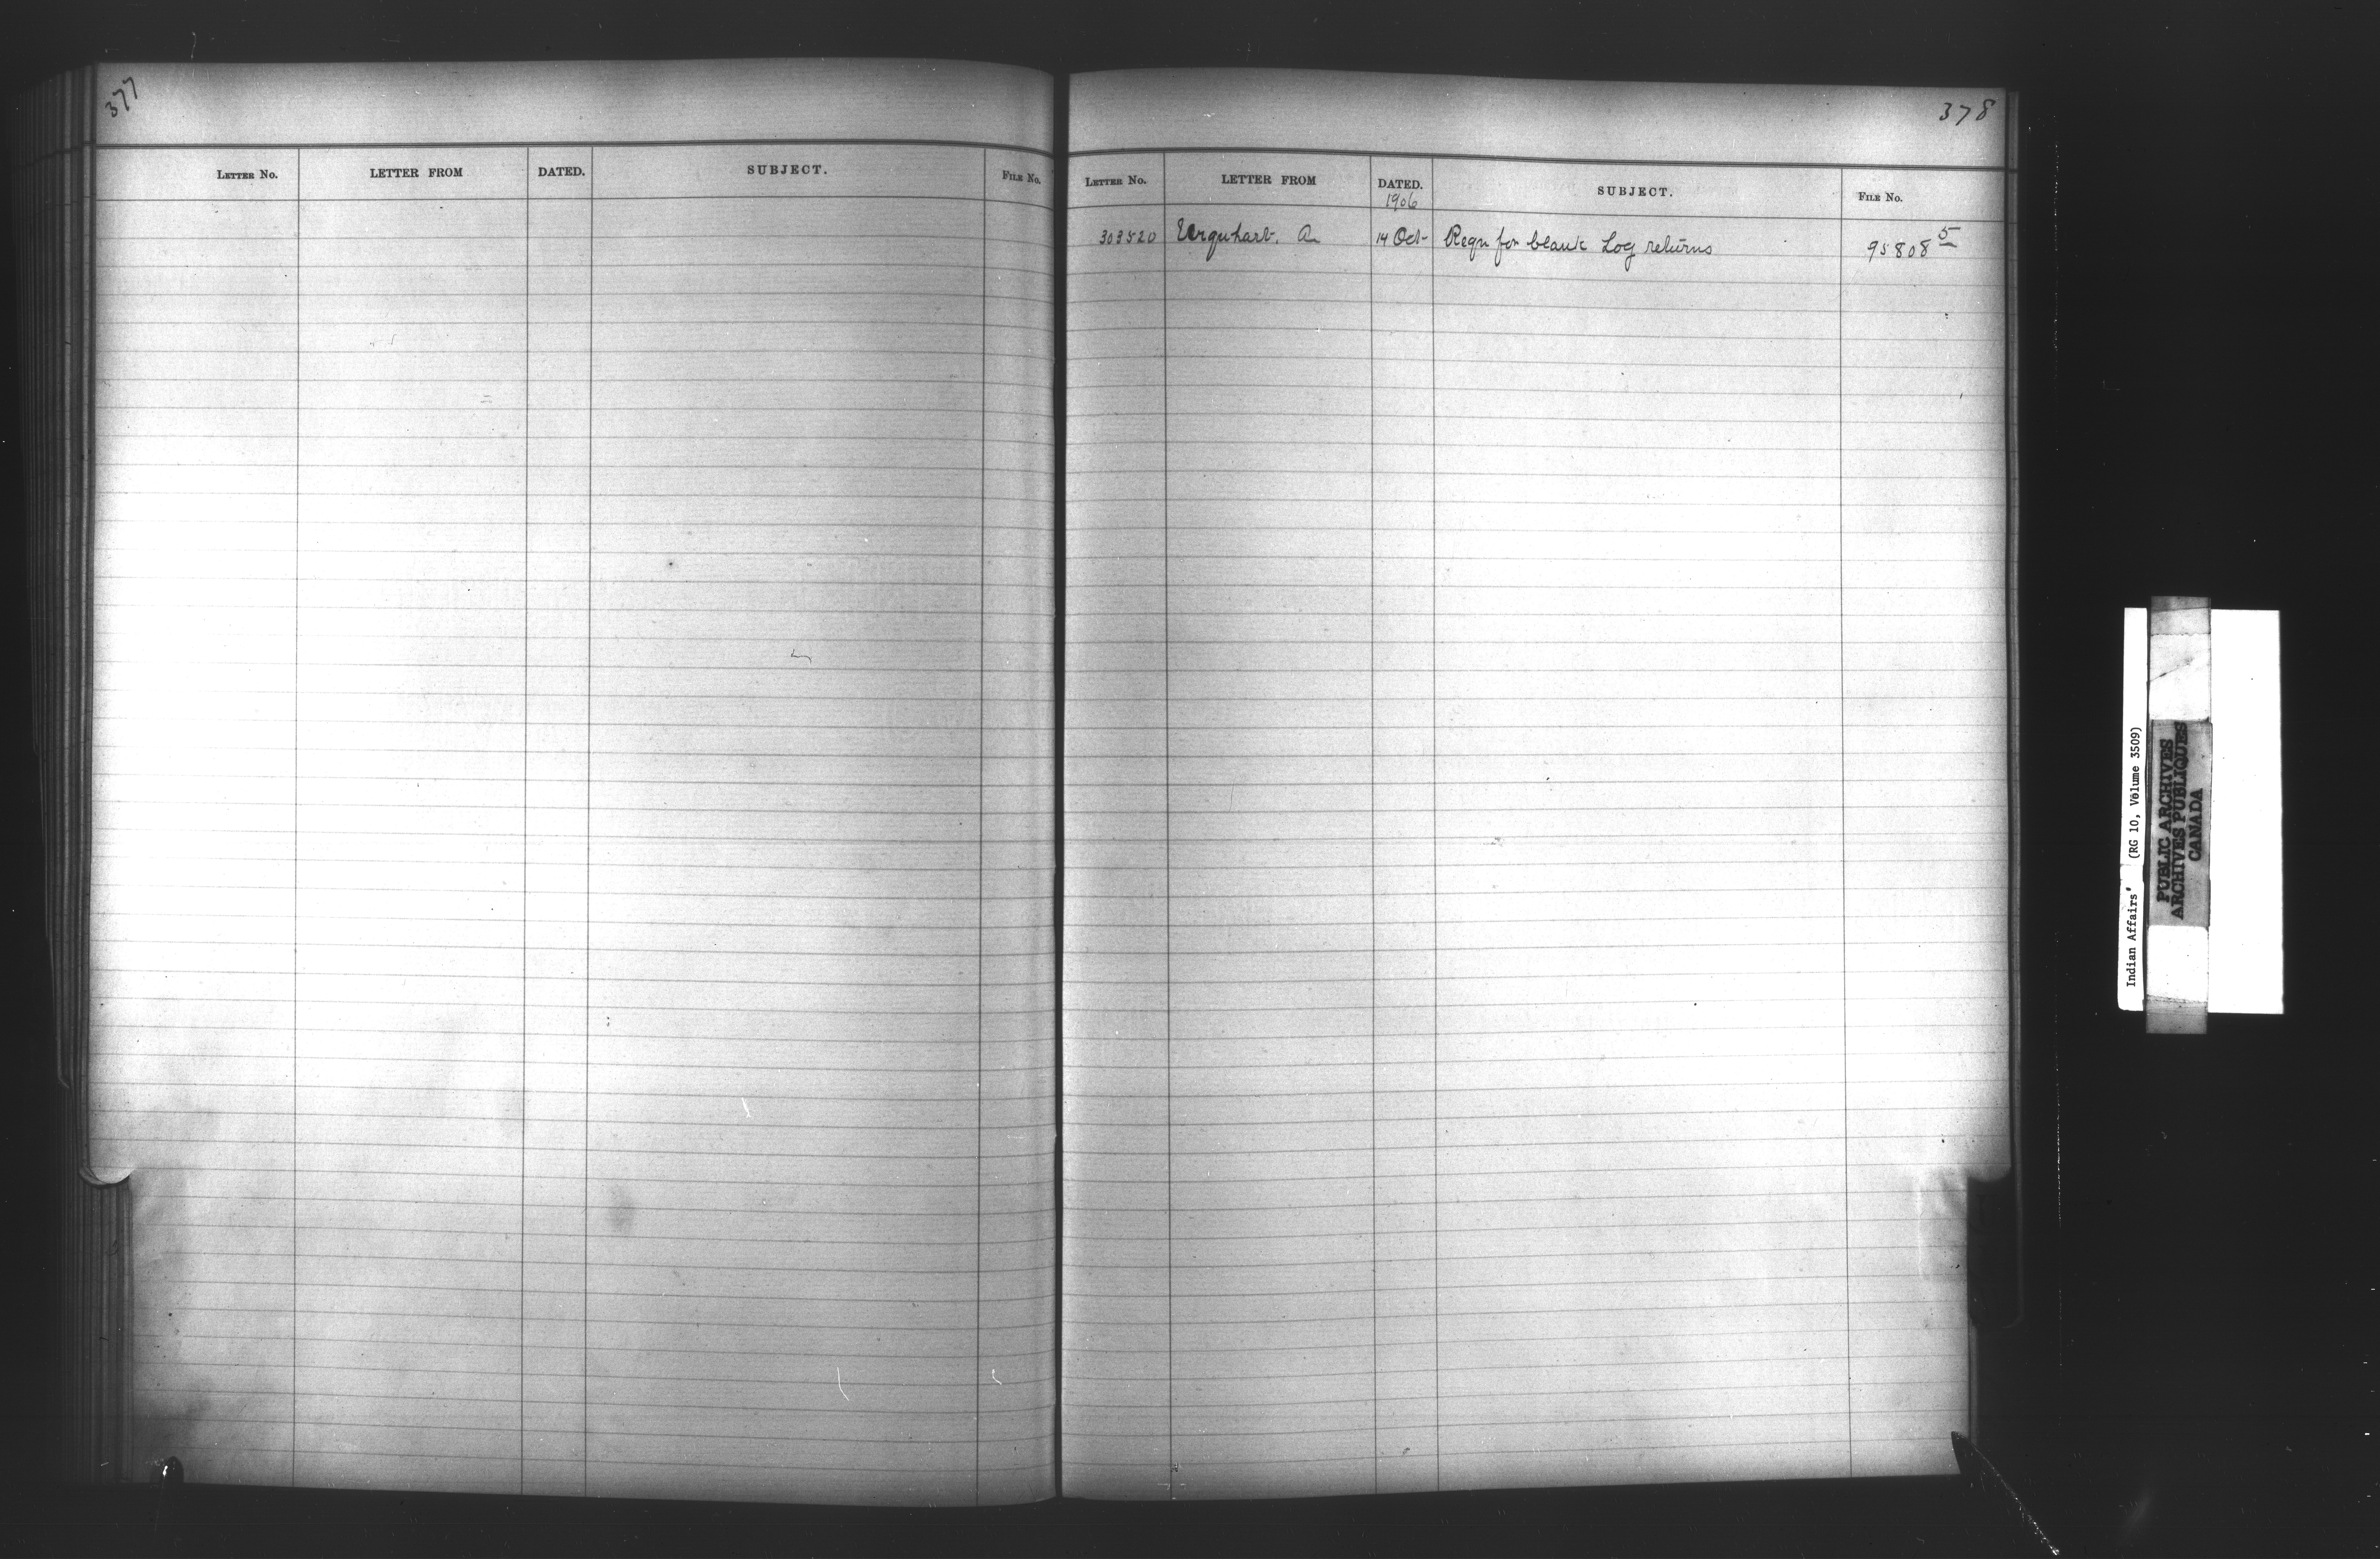 377
LETTER No. LETTER FROM DATED. SUBJECT. FILE No.
378
LETTER No. LETTER FROM DATED. SUBJECT. FILE No.
1906
303520 Urquhart. A 14 Oct Reqn for blank Log returns 95808 5
Indian Affairs (RG 10, Volume 3509)
PUBLIC ARCHIVES
ARCHIVES PUBLIQUES
CANADA